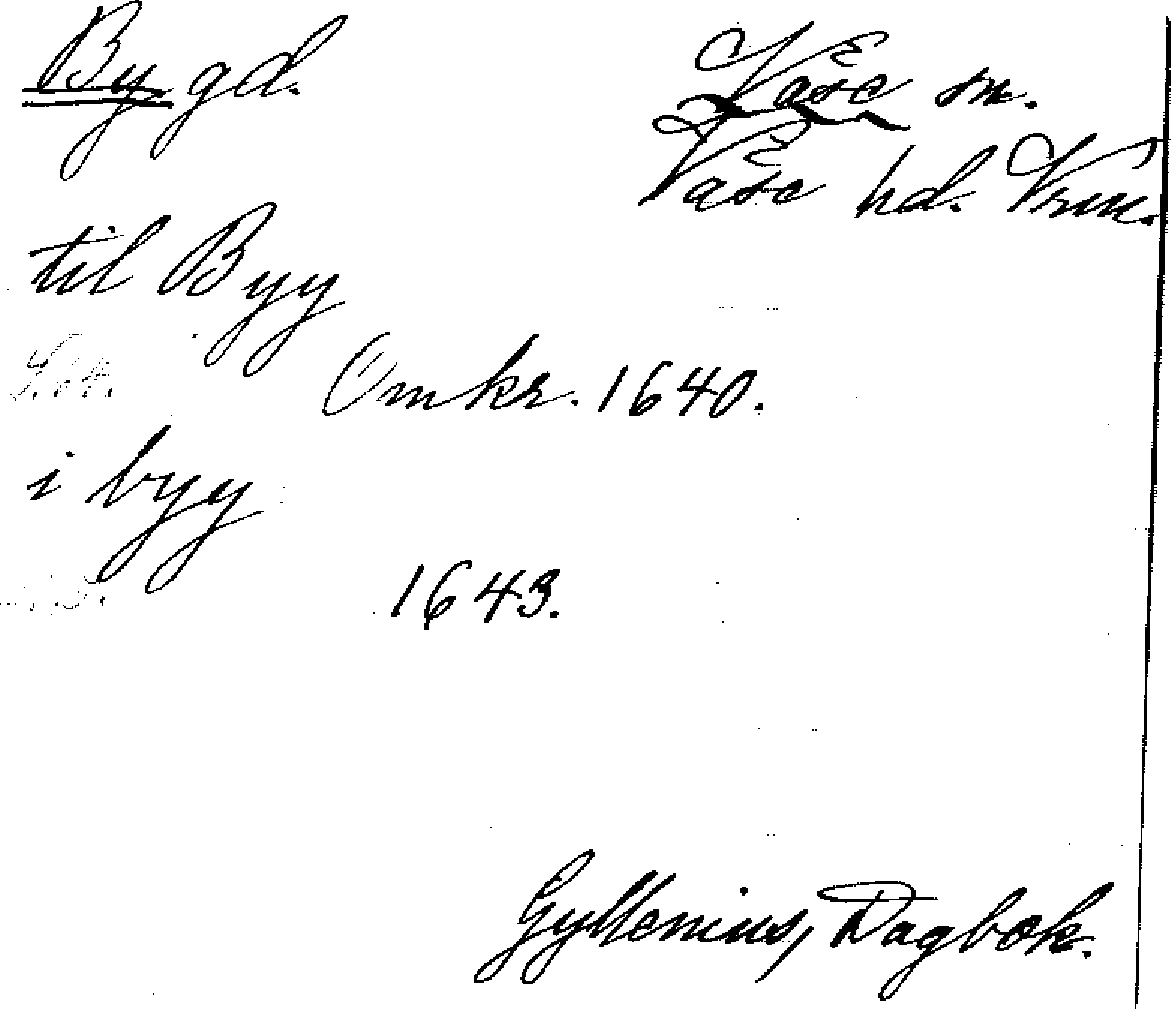 By gd.
Väse sn.
Väse hd. Vrm.
til Byy
Omkr. 1640.
i byy
1643.
Gyllenius, Dagbok.